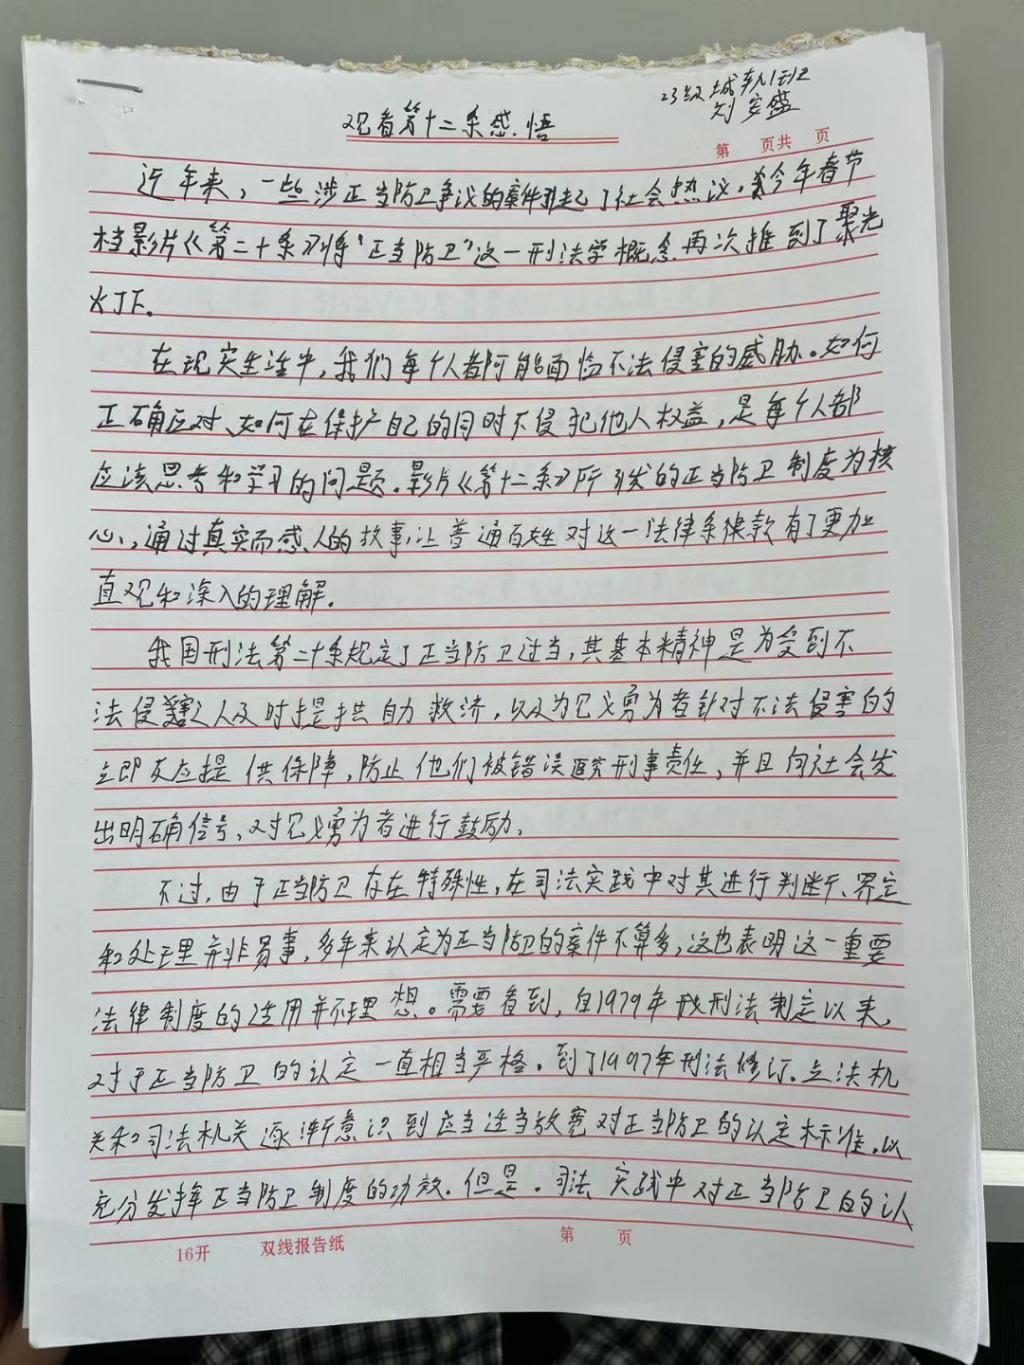 23级城轨1班
刘安盛
观看第十二条感悟
第 页共 页
近年来，一些涉正当防卫争议的案件引起了社会热议。今年春节
档影片《第二十条》将"正当防卫"这一刑法学概念再次推到了聚光
灯下。
在现实生活中，我们每个人都可能面临不法侵害的威胁。如何
正确应对、如何在保护自己的同时不侵犯他人权益，是每个人都
应该思考和学习的问题。影片《第十二条》所引发的正当防卫制度为核
心，通过真实而感人的故事，让普通百姓对这一法律条款有了更加
直观和深入的理解。
我国刑法第二十条规定了正当防卫过当，其基本精神是为受到不
法侵害之人及时提供自助救济，以及为见义勇为者针对不法侵害的
立即反应提供保障，防止他们被错误追究刑事责任，并且向社会发
出明确信号、对见义勇为者进行鼓励。
不过，由于正当防卫存在特殊性，在司法实践中对其进行判断、界定
和处理并非易事，多年来认定为正当防卫的案件不算多，这也表明这一重要
法律制度的适用并不理想。需要看到，自1979年我刑法制定以来，
对于正当防卫的认定一直相当严格。到了1997年刑法修订、立法机
关和司法机关逐渐意识到应当适当放宽对正当防卫的认定标准，以
充分发挥正当防卫制度的功效。但是，司法实践中对正当防卫的认
16开 双线报告纸 第 页